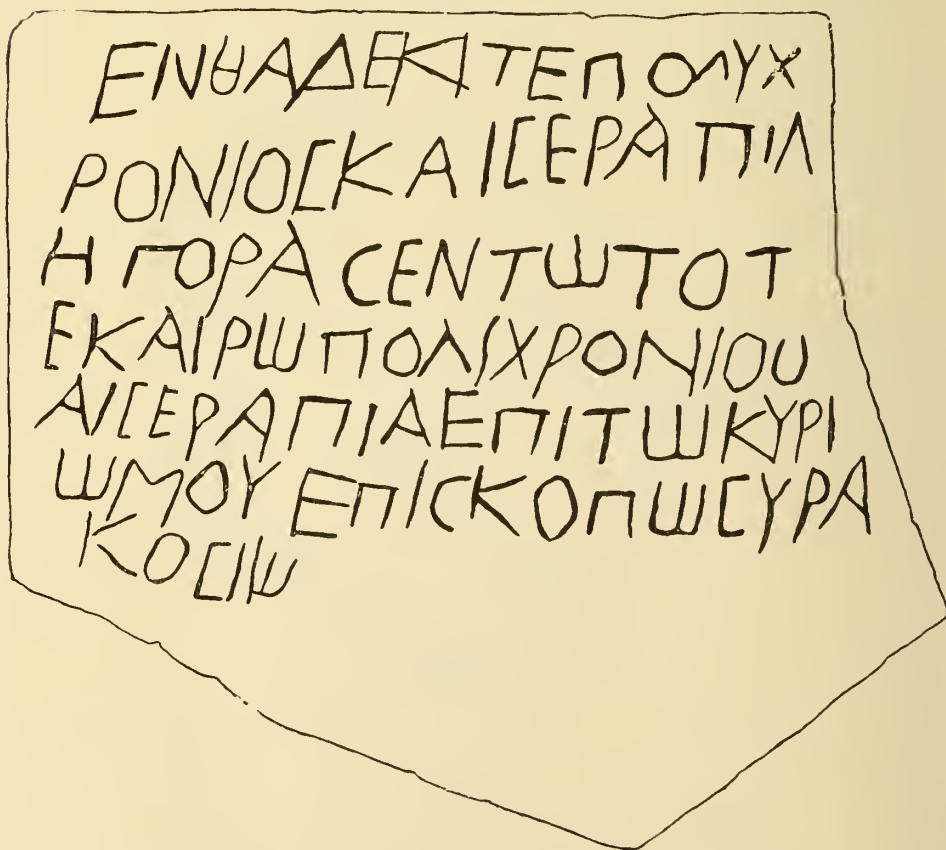 ΕΝΘΑΔΕΚΙΤΕΠΟΛΥΧ
ΡΟΝΙΟCΚΑΙCΕΡΑΠΙΛ
ΗΓΟΡΑCΕΝΤωΤΟΤ
ΕΚΑΙΡωΠΟΛΙΧΡΟΝΙΟΥ
ΑΙCΕΡΑΠΙΑΕΠΙΤωΚΥΡΙ
ωΜΟΥΕΠΙCΚΟΠωCΥΡΑ
ΚΟCΙω